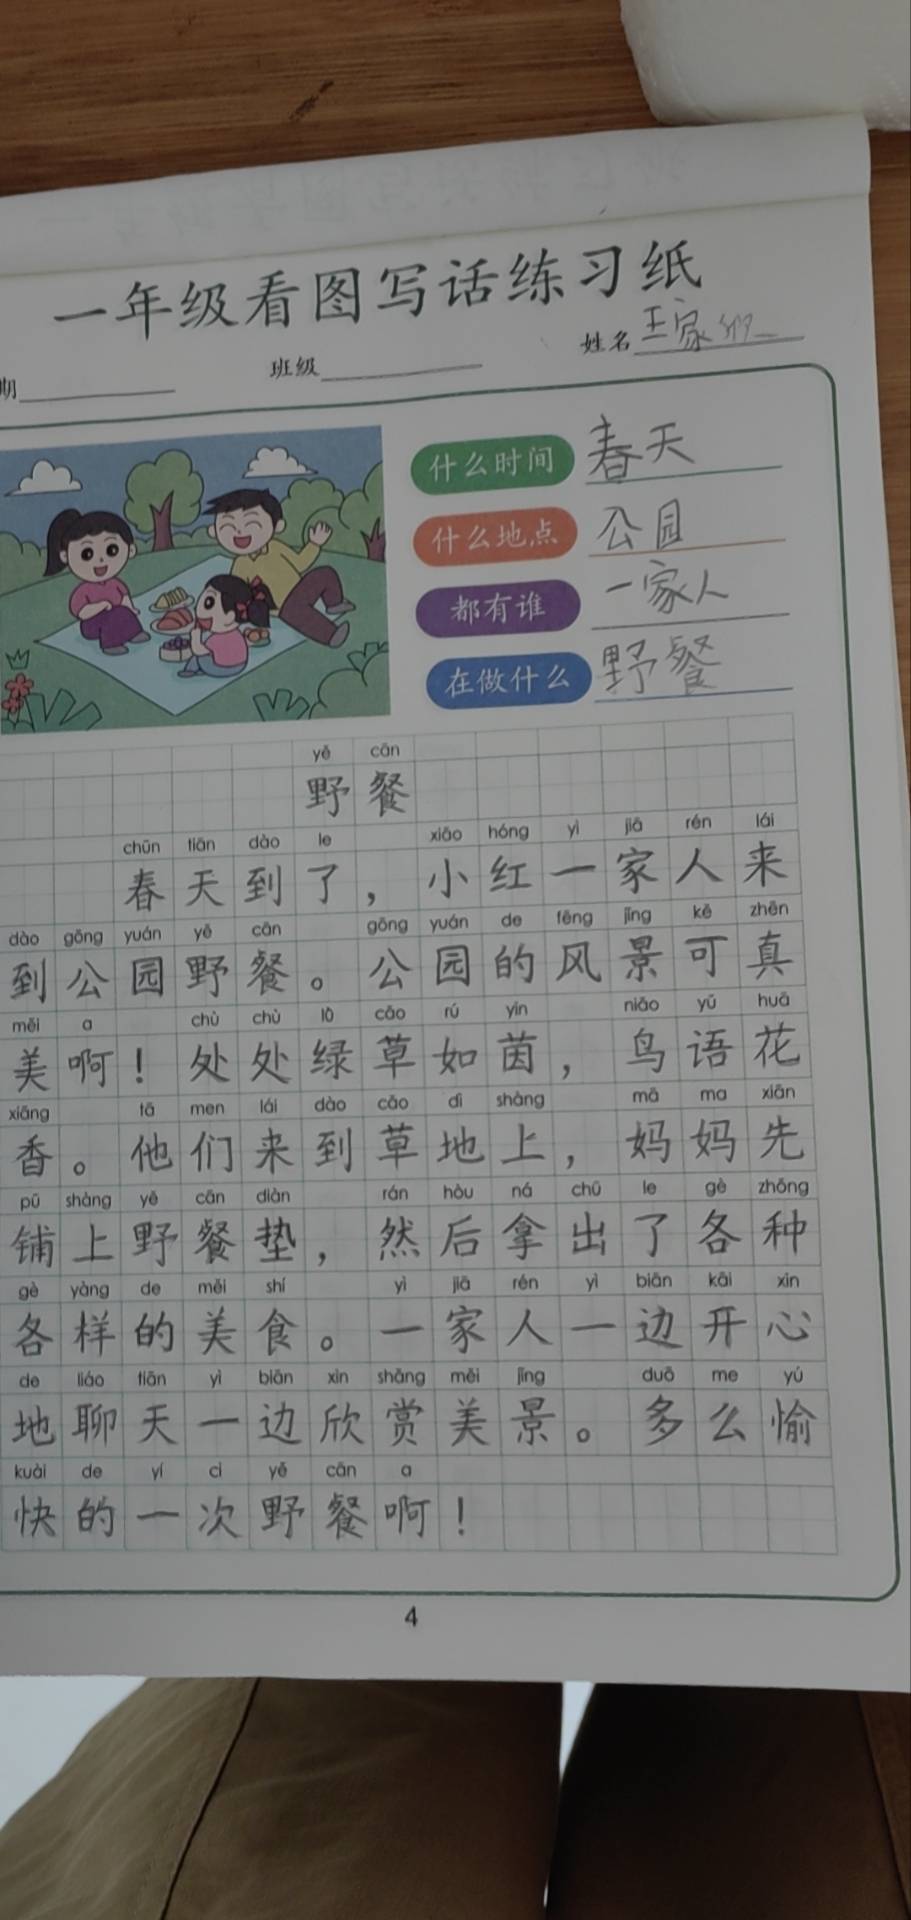 一年级看图写话练习纸
期 班级 姓名 王家
什么时间 春天
什么地点 公园
都有谁 一家人
在做什么 野餐
yě cān
野餐
chūn tiān dào le xiǎo hóng yì jiā rén lái
春天到了，小红一家人来
dào gōng yuán yě cān gōng yuán de fēng jǐng kě zhēn
到公园野餐。公园的风景可真
měi a chù chù lǜ cǎo rú yīn niǎo yǔ huā
美啊！处处绿草如茵，鸟语花
xiāng tā men lái dào cǎo dì shàng mā ma xiān
香。他们来到草地上，妈妈先
pū shàng yě cān diàn rán hòu ná chū le gè zhǒng
铺上野餐垫，然后拿出了各种
gè yàng de měi shí yì jiā rén yì biān kāi xīn
各样的美食。一家人一边开心
de liáo tiān yì biān xīn shǎng měi jǐng duō me yú
地聊天一边欣赏美景。多么愉
kuài de yí cì yě cān a
快的一次野餐啊！
4